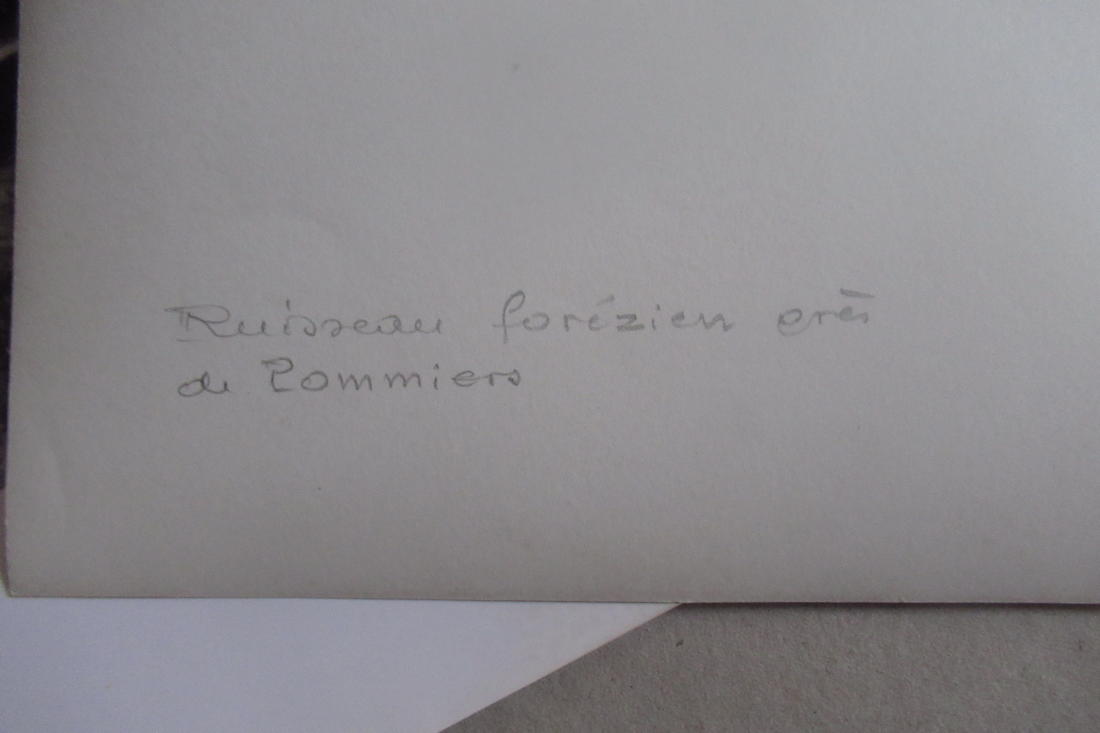 Ruisseau forézien près
de Pommiers